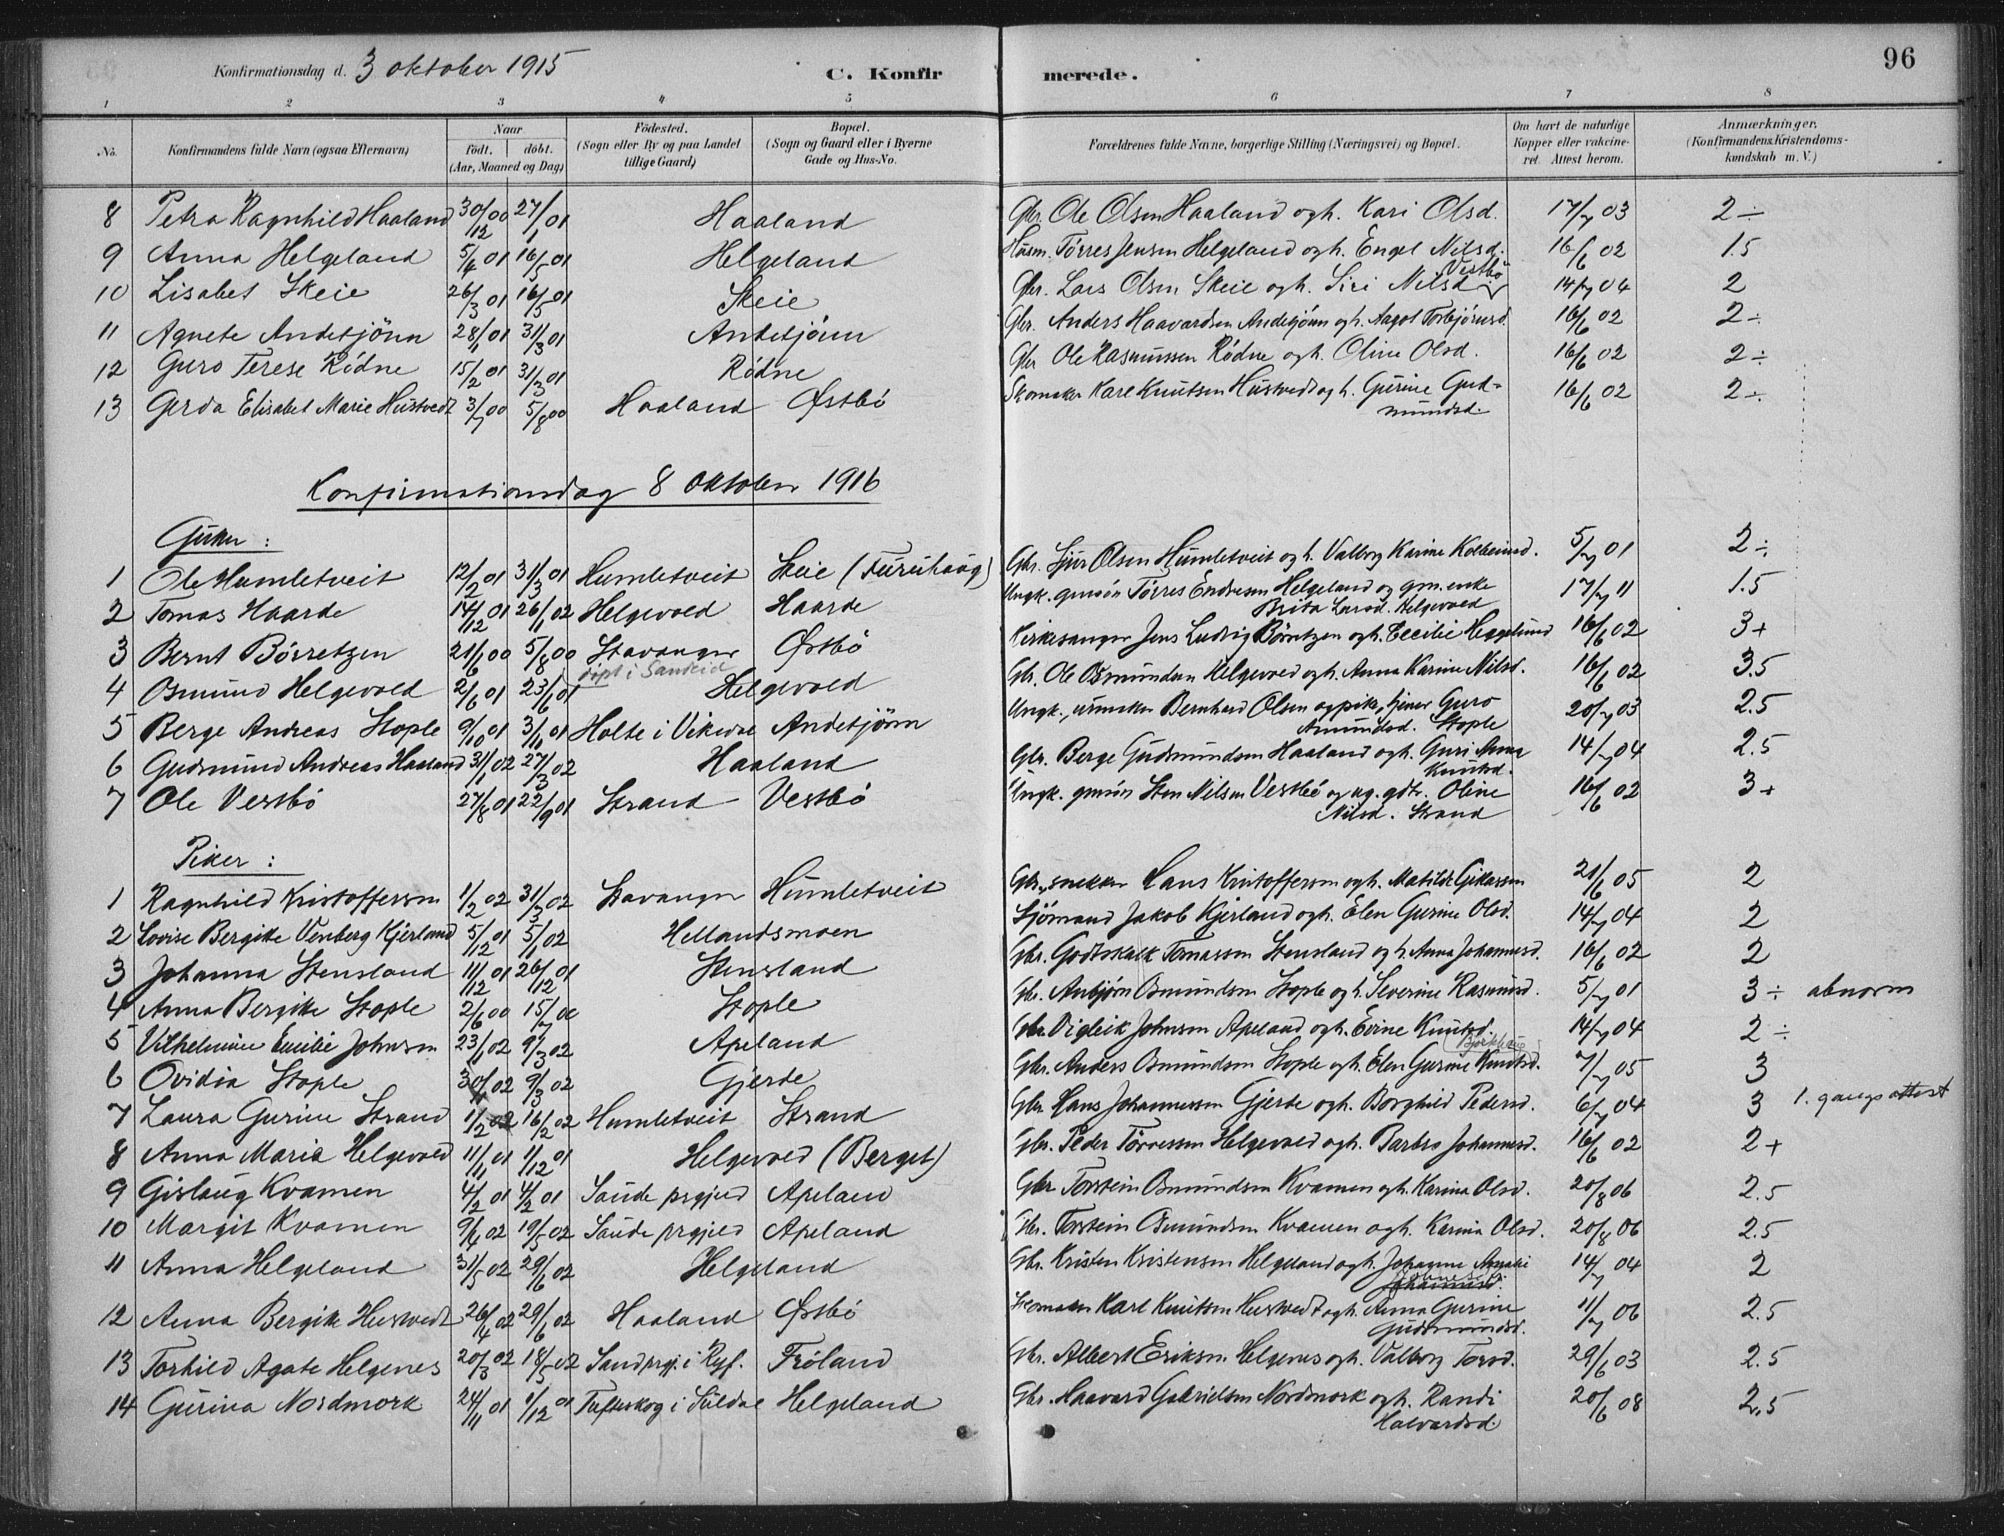 Konfirmationsdag d. 3 oktober 1915 C. Konfirmerede. 96
1 2 3 4 5 6 7 8
No. Konfirmandens fulde Navn (ogsaa Efternavn) Naar født. døbt. (Aar, Maaned og Dag) Fødested. (Sogn eller By og paa Landet tillige Gaard) Bopæl. (Sogn og Gaard eller i Byerne Gade og Hus-No. Forældrenes fulde Navne, borgerlige Stilling (Næringsvei) og Bopæl. Om havt de naturlige Kopper eller vakcineret. Attest herom. Anmærkninger. (Konfirmandens Kristendomskundskab m. V.)
8 Petra Ragnhild Haaland 30/12 00 27/1 01 Haaland Gbr. Ole Olsen Haaland og h. Kari Olsd. 17/7 03 2÷
9 Anna Helgeland 5/4 01 16/5 01 Helgeland Husm. Tørres Jensen Helgeland og h. Engel Nilsd. 16/6 02 1.5
Vestbø
10 Lisabet Skeie 26/3 01 16/5 01 Skeie Gbr. Lars Olsen Skeie og h. Siri Nilsd 14/7 04 2
11 Agnete Andetjönn 28/1 01 31/3 01 Andetjönn Gbr. Anders Haavardsen Andetjönn og h. Aagot Torbjörnsd. 16/6 02 2÷
12 Guro Terese Rødne 15/2 01 31/3 01 Rødne Gbr Ole Rasmussen Rødne og h. Oline Olsd. 16/6 02 2÷
13 Gerda Elisabet Marie Hustvedt 3/7 00 5/8 00 Haaland Østbø Skomaker Karl Knutsen Hustvedt og h. Gurine Gud-
mundsd. 16/6 02 2÷
Konfirmationsdag 8 oktober 1916
Gutter :
1 Ole Humletveit 12/2 01 31/3 01 Humletveit Skeie (Furuhaug) Gbr. Sjur Olsen Humletveit og h. Valborg Karine Kolbeinsd. 5/7 01 2÷
2 Tomas Haarde 14/12 01 26/1 02 Helgevold Haarde Ungk. gmsön Tørres Endresen Helgeland og gm.enke
Brita Larsd. Helgevold 17/7 11 1.5
3 Bernt Børretzen 21/6 00 5/8 00 Stavanger Østbø Kirkesanger Jens Ludvig Børretzen og h. Cecilie Heggelund 16/6 02 3+
døpt i Sandeid
4 Osmund Helgevold 2/6 01 23/6 01 Helgevold Gbr. Ole Osmundsen Helgevold og h. Anna Karine Nilsd. 16/6 02 3.5
5 Berge Andreas Stople 9/10 01 3/11 01 Holte i Vikedal Andetjönn Ungk., urmaker Bernhard Olsen og pike, tjener Guro
Amundsd. Stople 20/7 03 2.5
6 Gudmund Andreas Haaland 31/1 02 27/3 02 Haaland Gbr. Berge Gudmundsen Haaland og h. Guri Anna
Knutsd. 14/7 04 2.5
7 Ole Vestbø 27/8 01 22/9 01 Strand Vestbø Ungk. gmsön Sten Nilsen Vestbø og ug. gdtr. Oline
Nilsd. Strand 16/6 02 3+
Piker :
1 Ragnhild Kristoffersen 1/2 02 31/3 02 Stavanger Humletveit Gbr., snekker Hans Kristoffersen og h. Matilde Gitlassen 21/6 05 2
2 Lovise Bergite Vinberg Kjerland 5/12 01 5/1 02 Hellandsmoen Sjömand Jakob Kjerland og h. Elen Gurine Olsd. 14/7 04 2
3 Johanna Stensland 11/12 01 26/12 01 Stensland Gbr. Godtskalk Tomassen Stensland og h. Anna Johannesd. 16/6 02 2
4 Anna Bergite Stople 2/6 00 15/7 00 Stople Gbr. Anbjørn Osmundsen Stople og h. Severine Rasmusd. 5/7 01 3÷ abnorm
5 Vilhelmine Emilie Johnsen 23/1 02 9/3 02 Apeland Gbr. Vigleik Johnsen Apeland og h. Evine Knutsd. 14/7 04 2÷
6 Ovidia Stople 30/1 02 9/3 02 Gjerde Gbr. Anders Osmundsen Stople og h. Elen Gurine Knutsd. 7/7 05 3
7 Laura Gurine Strand 1/2 02 16/2 02 Humletveit Strand Gbr. Hans Johannessen Gjerde og h. Borghild Pedersd. 6/7 04 3 1. gangs attest
8 Anna Maria Helgevold 11/11 01 1/12 01 Helgevold (Berget) Gbr. Peder Tørressen Helgevold og h. Barbro Johannesd. 16/6 02 2+
9 Gislaug Kvamen 4/2 01 4/2 01 Saude prgjeld Apeland Gbr Torstein Osmundsen Kvamen og h. Karina Olsd. 20/8 06 2.5
10 Margit Kvamen 9/4 02 19/5 02 Saude prgjeld Apeland Gbr. Torstein Osmundsen Kvamen og h. Karina Olsd. 20/8 06 2.5
11 Anna Helgeland 31/5 02 29/6 02 Helgeland Gbr. Kristen Kristensen Helgeland og h. Johanne Amalie 14/7 04 2
12 Anna Bergite Hustvedt 26/4 02 29/6 02 Haaland Østbø Skomaker Karl Knutsen Hustvedt og h. Anna Gurine
Gudmundsd. 11/7 06 2.5
13 Torhild Agate Helgenes 20/3 02 18/5 02 Sand prgj. i Ryf. Frøland Gbr. Albert Eriksen Helgenes og h. Valborg Torsd. 29/6 03 2.5
14 Gurina Nordmork 24/11 01 1/12 01 Tufteskog i Suldal Helgeland Gbr. Haavard Gabrielsen Nordmork og h. Randi
Halvardsd. 20/6 08 2.5